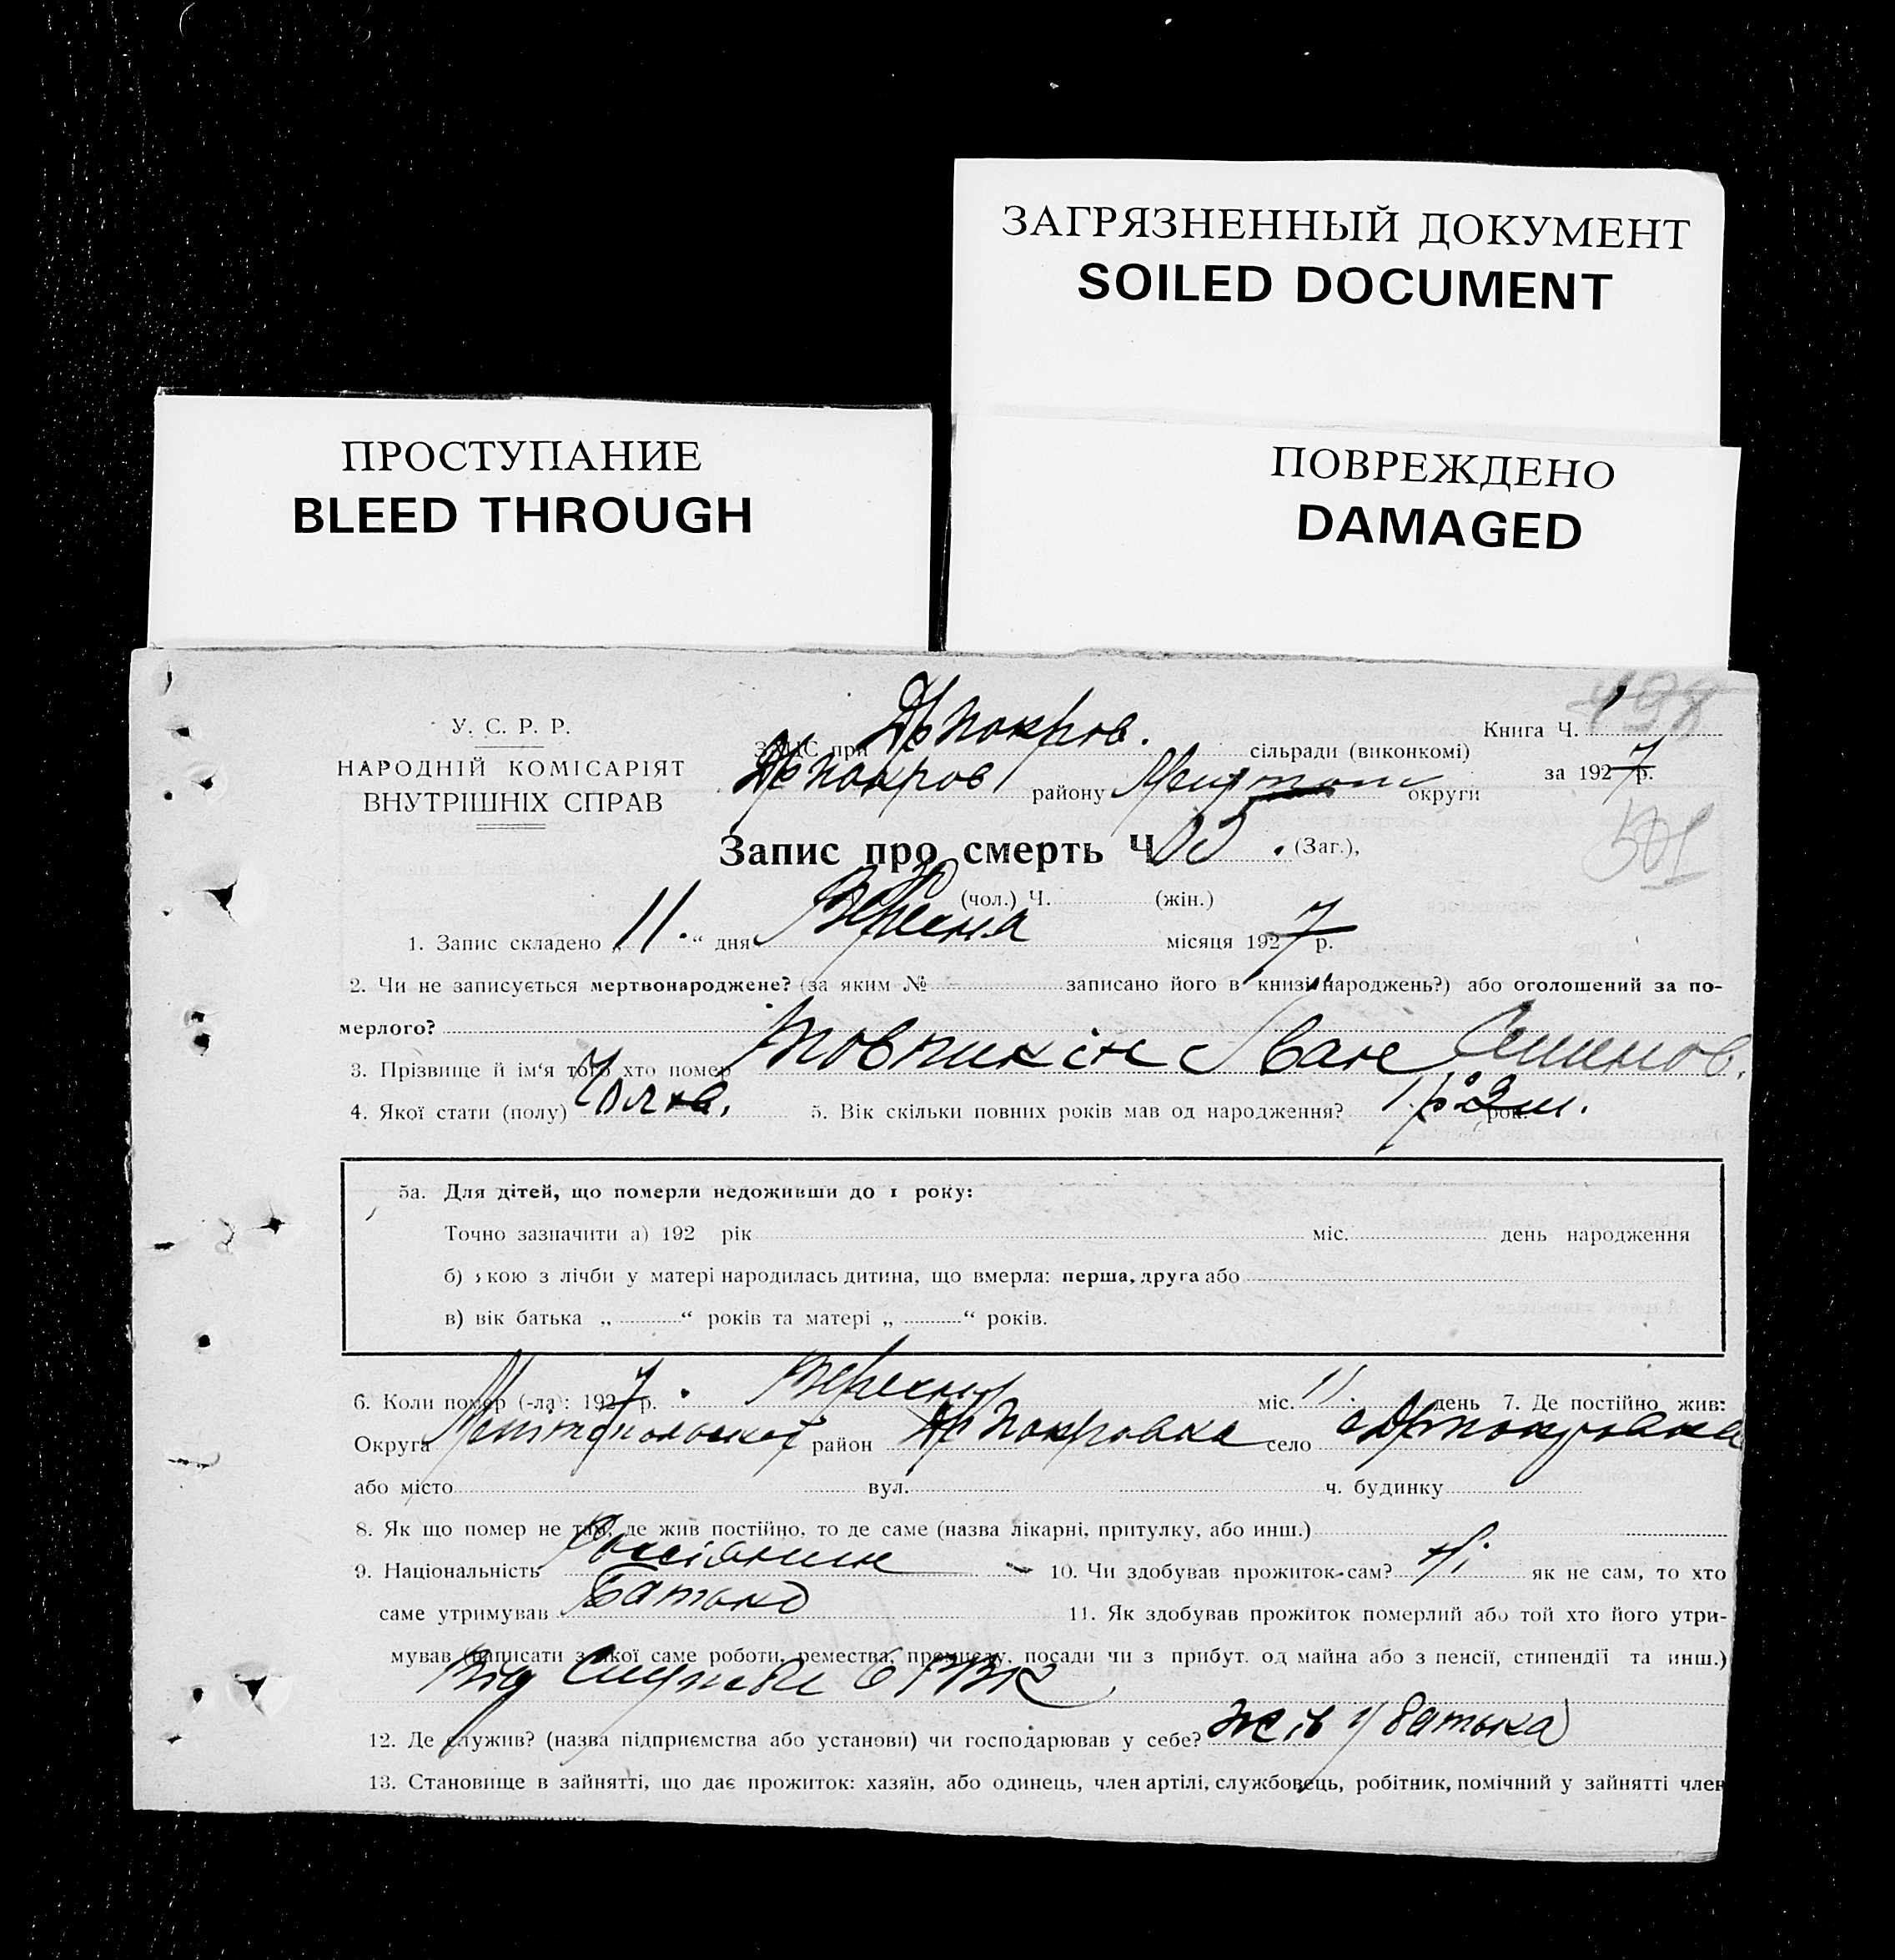 ЗАГРЯЗНЕННЫЙ ДОКУМЕНТ
SOILED DOCUMENT
ПРОСТУПАНИЕ
BLEED THROUGH
ПОВРЕЖДЕНО
DAMAGED
У. С. Р. Р.
НАРОДНІЙ КОМІСАРІЯТ
ВНУТРІШНІХ СПРАВ
ЗАГС при сільради (виконкомі)
району округи
Книга Ч. 498
за 1927 р.
501
Запис про смерть Ч. (Заг.),
(чол.) Ч. (жін.)
1. Запис складено „11“ дня Вересня місяця 1927 р.
2. Чи не записується мертвонароджене? (за яким № записано його в книзі народжень?) або оголошений за по-
мерлого?
3. Прізвище й ім'я того хто помер Іван
4. Якої стати (полу) 5. Вік скільки повних років мав од народження? рок.
5а. Для дітей, що померли недоживши до 1 року:
Точно зазначити а) 192 рік міс. день народження
б) якою з лічби у матері народилась дитина, що вмерла: перша, друга або
в) вік батька „ “ років та матері „ “ років.
6. Коли помер (-ла): 1927 р. міс. 11. день 7. Де постійно жив:
Округа район село
або місто вул. ч. будинку
8. Як що помер не там, де жив постійно, то де саме (назва лікарні, притулку, або инш.)
9. Національність Росіянин 10. Чи здобував прожиток сам? Ні як не сам, то хто
саме утримував Батько 11. Як здобував прожиток померлий або той хто його утри-
мував (написати з якої саме роботи, ремества, промислу, посади чи з прибут. од майна або з пенсії, стипендії та инш.)
Від служби в РВК
12. Де служив? (назва підприємства або установи) чи господарював у себе? Жів у батька
13. Становище в зайнятті, що дає прожиток: хазяїн, або одинець, член артілі, службовець, робітник, помічний у зайнятті член